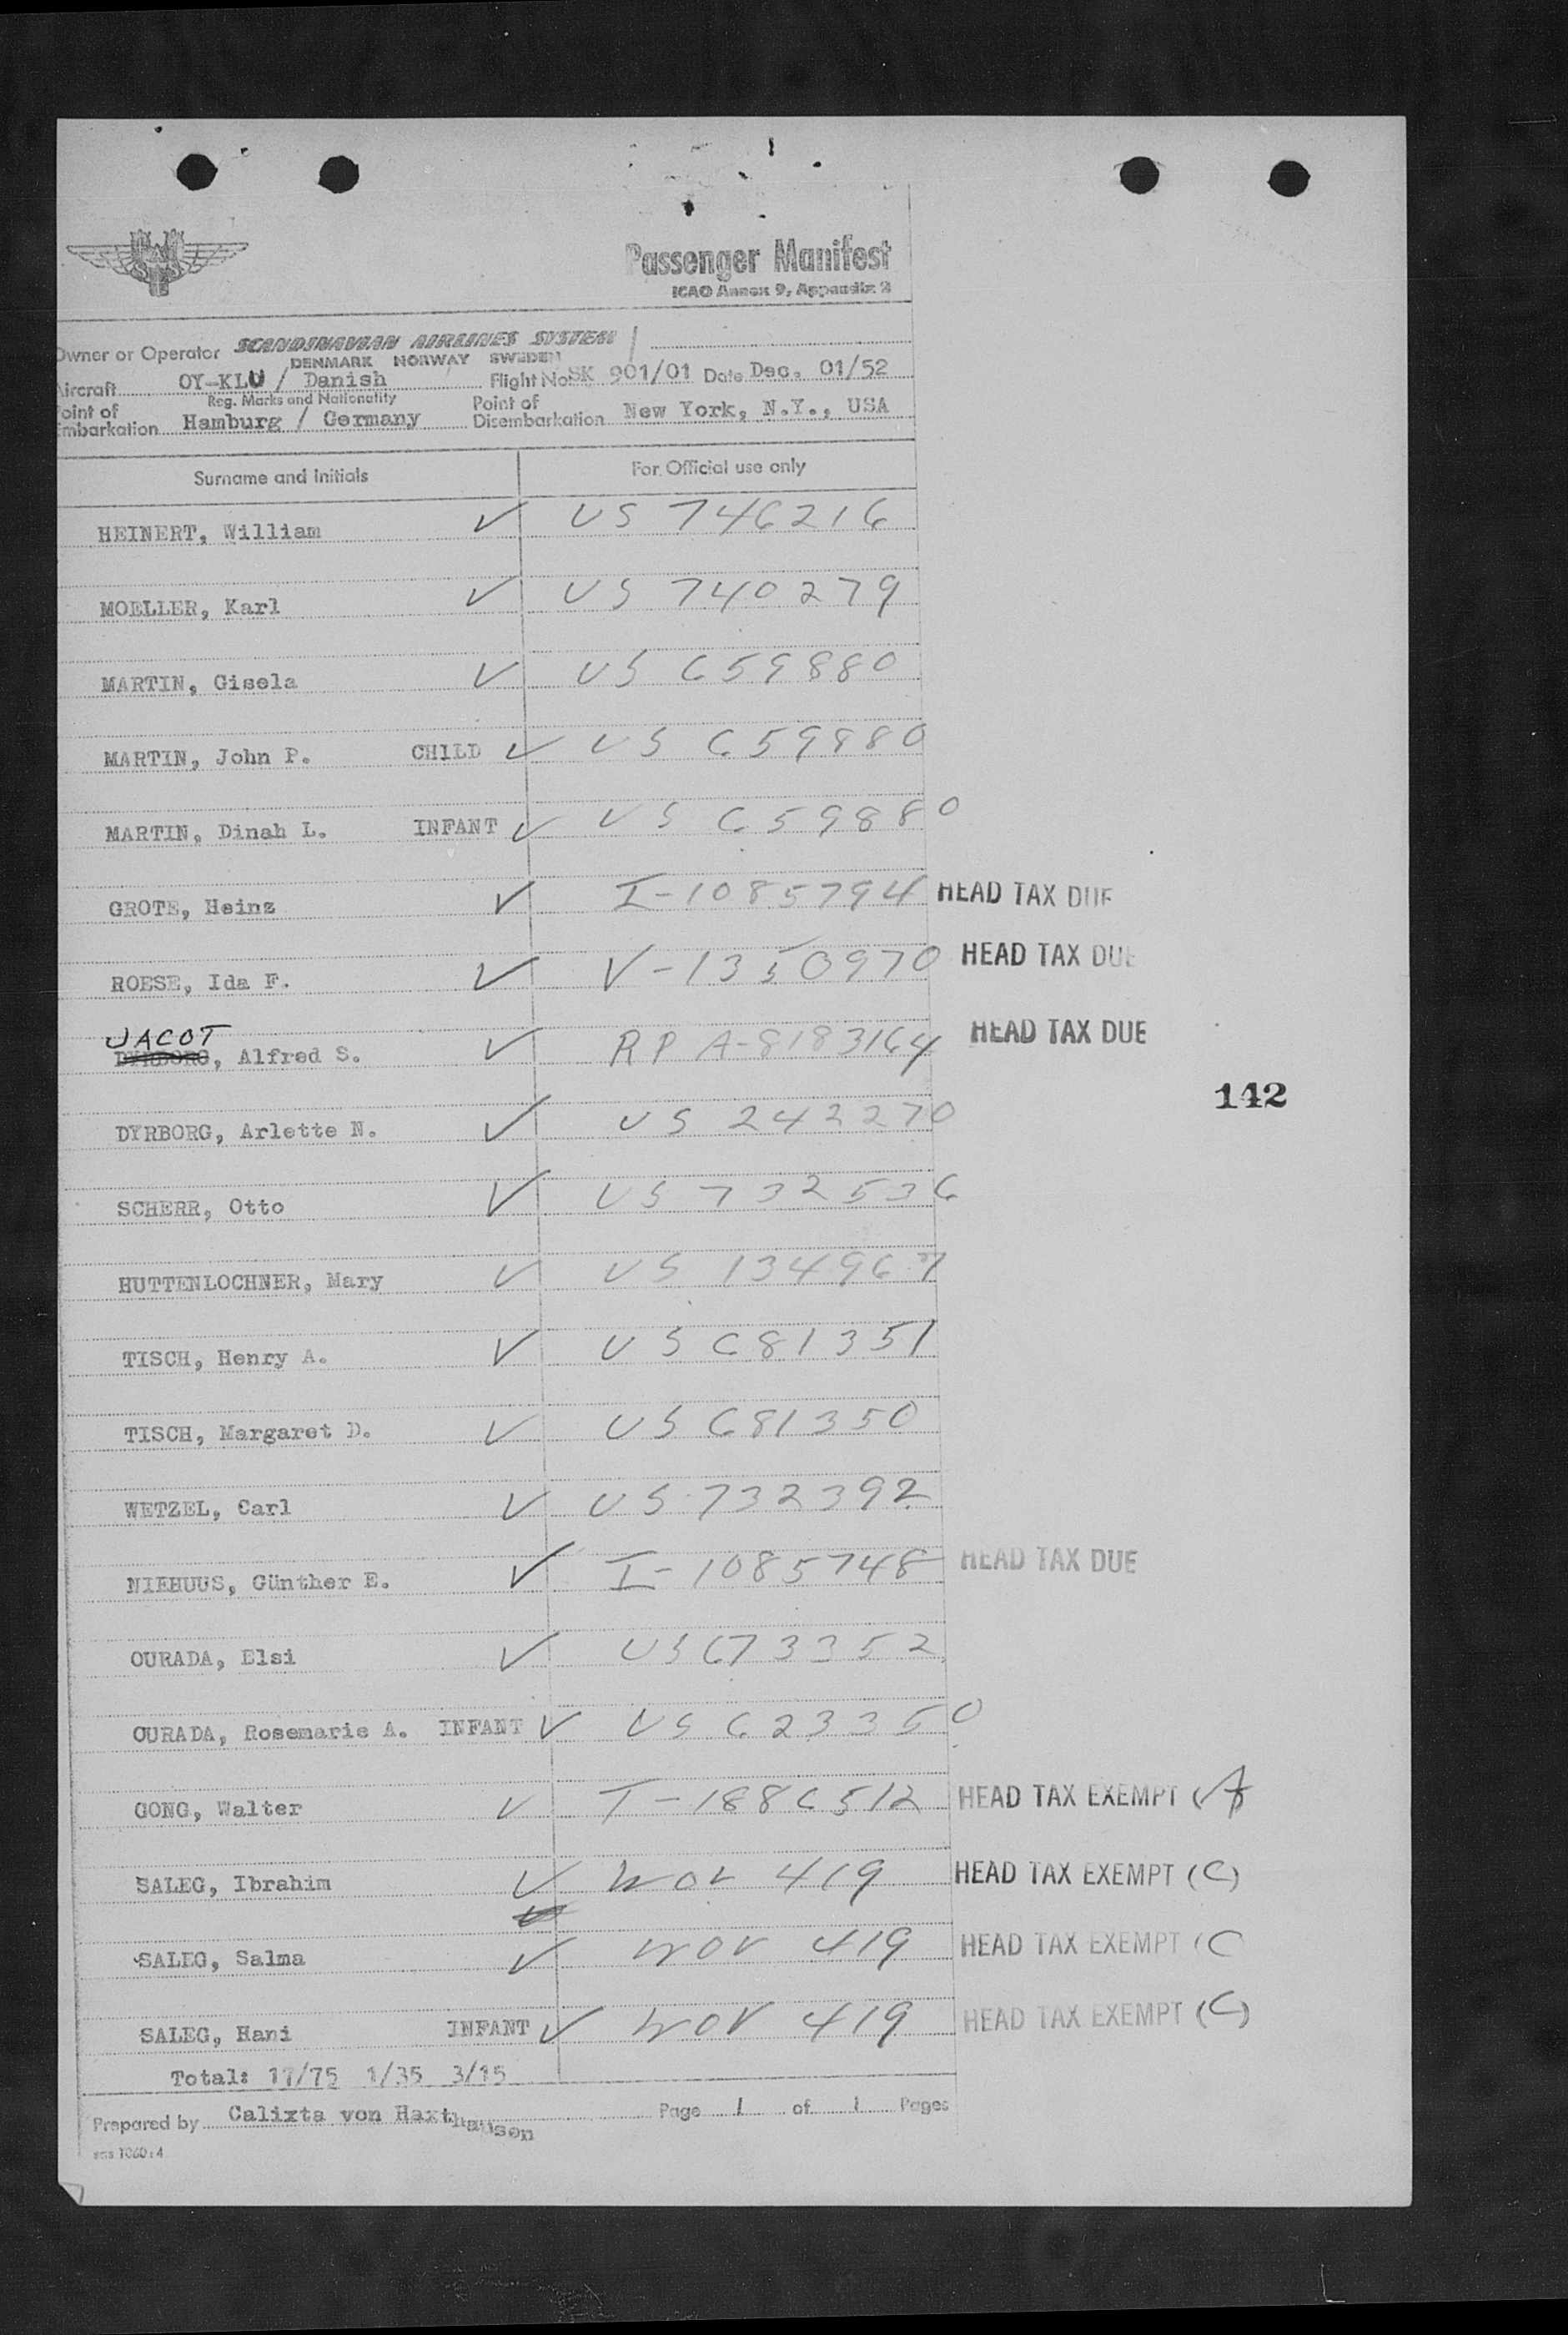 SAS
Passenger Manifest
ICAO Annex 9, Appendix 2
Owner or Operator SCANDINAVIAN AIRLINES SYSTEM
DENMARK NORWAY SWEDEN
Aircraft OY-KLU / Danish Flight No SK 901/01 Date Dec. 01/52
Reg. Marks and Nationality
Point of Embarkation Hamburg / Germany Point of Disembarkation New York, N.Y., USA
Surname and Initials For Official use only
HEINERT, William ✓ US 746216
MOELLER, Karl ✓ US 740279
MARTIN, Gisela ✓ US 659880
MARTIN, John P. CHILD ✓ US 659880
MARTIN, Dinah L. INFANT ✓ US 659880
GROTE, Heinz ✓ I-1085794 HEAD TAX DUE
ROESE, Ida F. ✓ V-1350970 HEAD TAX DUE
JACOT
DYRBORG, Alfred S. ✓ RP A-8183164 HEAD TAX DUE
142
DYRBORG, Arlette N. ✓ US 242270
SCHERR, Otto ✓ US 732536
HUTTENLOCHNER, Mary ✓ US 134967
TISCH, Henry A. ✓ US 681351
TISCH, Margaret D. ✓ US 681350
WETZEL, Carl ✓ US 732392
NIEHUUS, Günther E. ✓ I-1085748 HEAD TAX DUE
OURADA, Elsi ✓ US 673352
OURADA, Rosemarie A. INFANT ✓ US 623350
GONG, Walter ✓ I-1886512 HEAD TAX EXEMPT (A
SALEG, Ibrahim ✓ WOV 419 HEAD TAX EXEMPT (C)
SALEG, Salma ✓ WOV 419 HEAD TAX EXEMPT (C
SALEG, Hani INFANT ✓ WOV 419 HEAD TAX EXEMPT (C)
Total: 17/75 1/35 3/15
Prepared by Calixta von Haxthausen Page 1 of 1 Pages
sas 1060:4